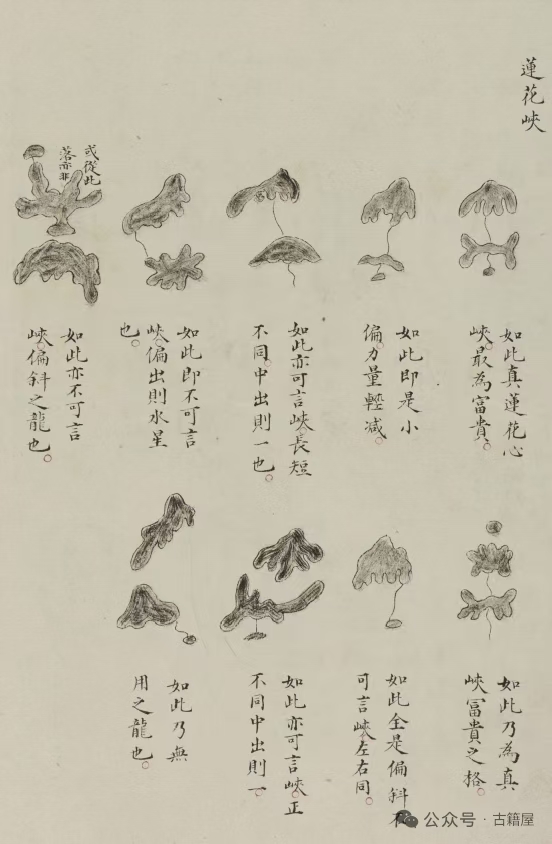 蓮花峽
如此真蓮花心
峽最為富貴。
如此即是小
偏力量輕減。
如此亦可言峽長短
不同中出則一也。
如此即不可言
峽偏出則水星
也。
或從此
落亦非
如此亦不可言
峽偏斜之龍也。
如此乃為真
峽富貴之格。
如此全是偏斜不
可言峽左右同。
如此亦可言峽正
不同中出則一。
如此乃無
用之龍也。
公众号·古籍屋